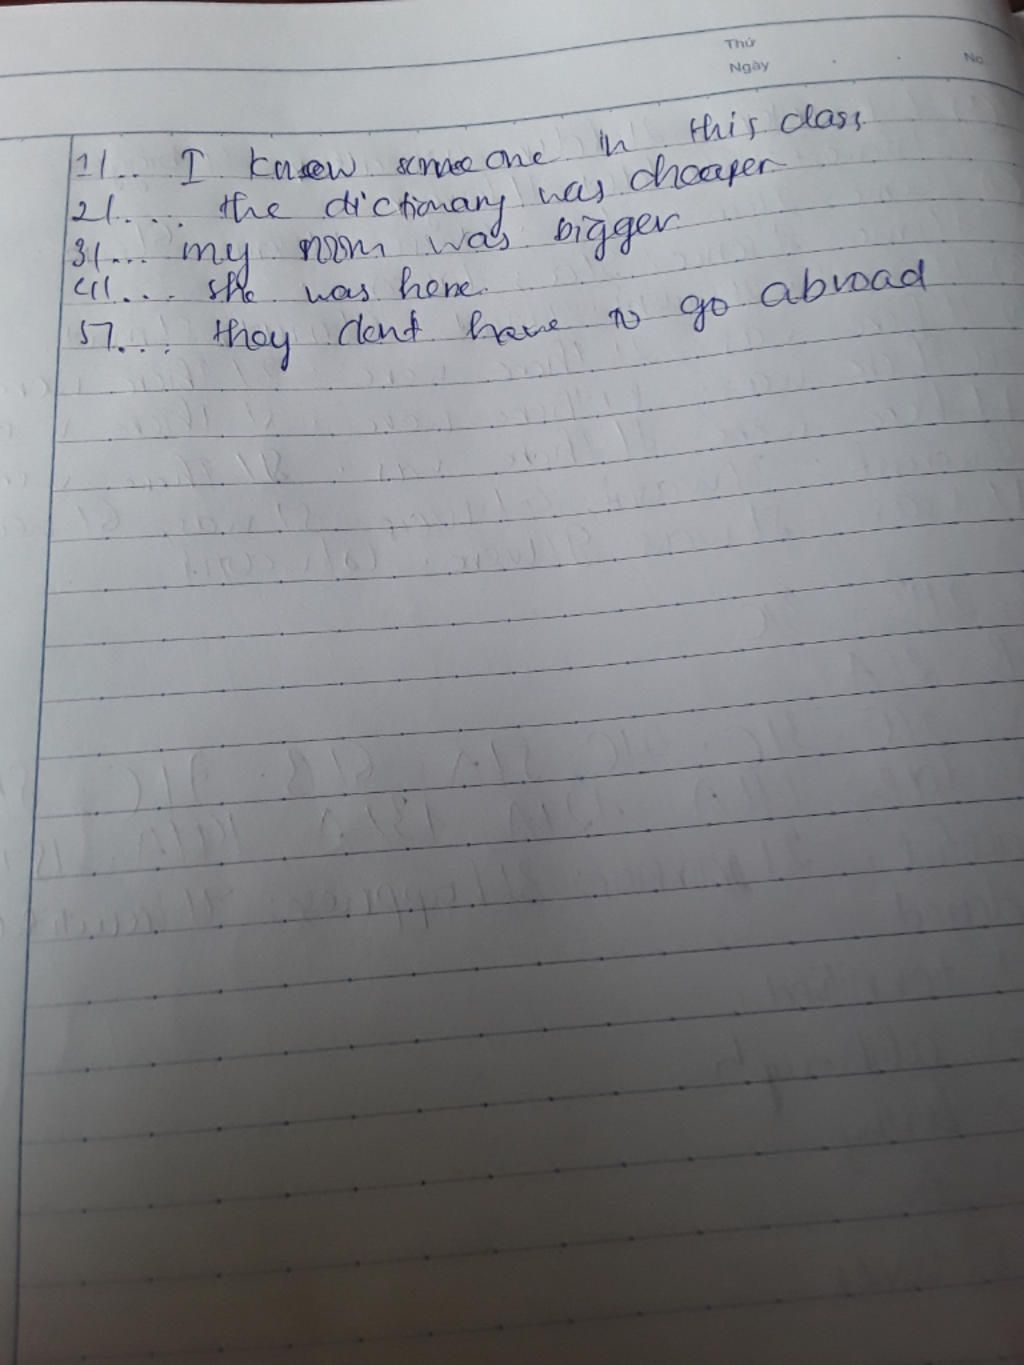 Thứ
Ngày
No
1/... I know someone in this class
2/.... the dictionary was cheaper
3/... my room was bigger
4/... she was here.
5/... they dont have to go abroad